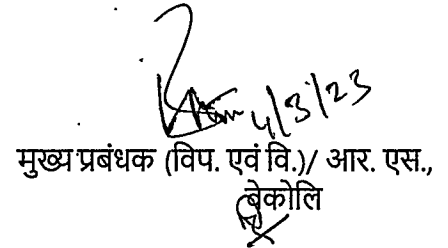 4/3/23
मुख्य प्रबंधक (विप. एवं वि.)/ आर. एस.,
बेकोलि